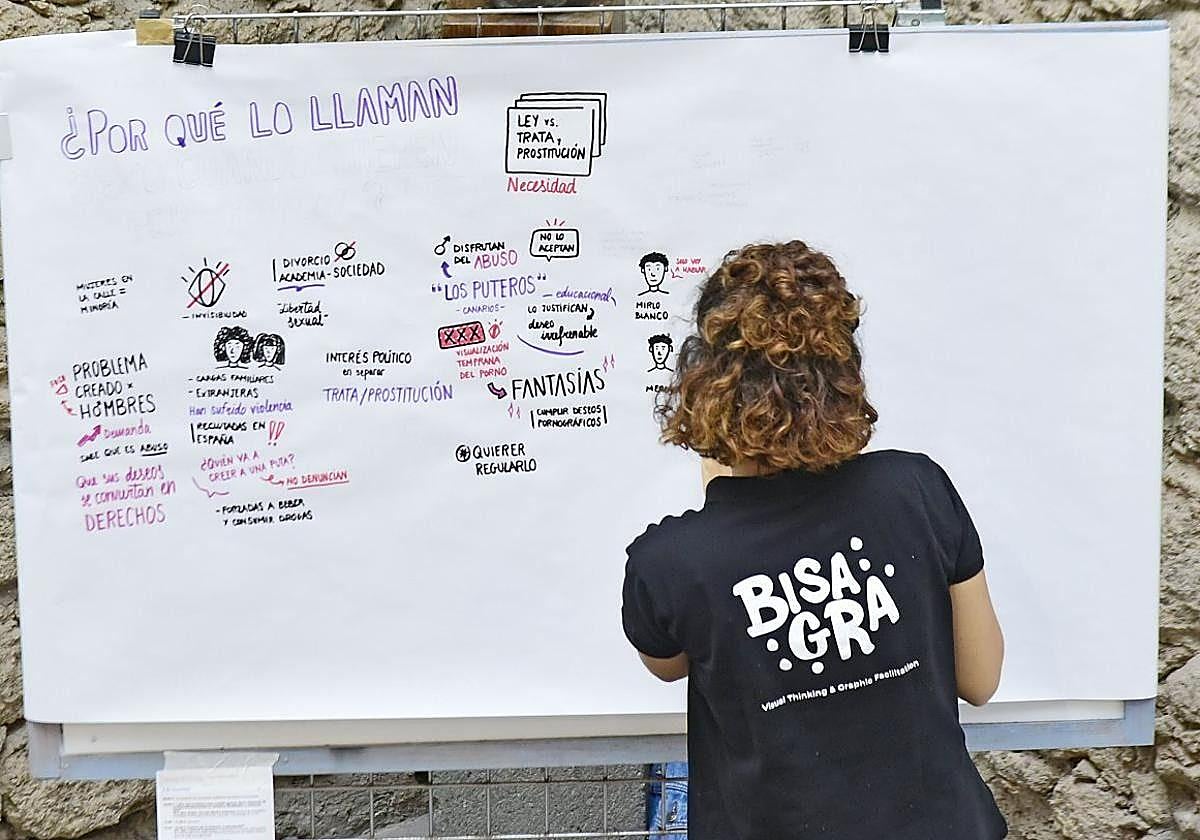 ¿POR QUÉ LO LLAMAN
LEY vs.
TRATA y
PROSTITUCIÓN
Necesidad
MUJERES EN
LA CALLE =
MINORÍA
- INVISIBILIDAD
DIVORCIO
ACADEMIA - SOCIEDAD
"Libertad
sexual"
PROBLEMA
CREADO x
HOMBRES
Demanda
SABE QUE ES ABUSO
Que sus deseos
se conviertan en
DERECHOS
- CARGAS FAMILIARES
- EXTRANJERAS
Han sufrido violencia
RECLUTADAS EN
ESPAÑA !!
¿QUIÉN VA A
CREER A UNA PUTA?
NO DENUNCIAN
- FORZADAS A BEBER
Y CONSUMIR DROGAS
INTERÉS POLÍTICO
en separar
TRATA/PROSTITUCIÓN
DISFRUTAN
DEL ABUSO
NO LO
ACEPTAN
"LOS PUTEROS"
- CANARIOS -
educacional
LO JUSTIFICAN
deseo
irrefrenable
XXX
VISUALIZACIÓN
TEMPRANA
DEL PORNO
FANTASÍAS
CUMPLIR DESEOS
PORNOGRÁFICOS
QUIERER
REGULARLO
SOLO VOY
A HABLAR
MIRLO
BLANCO
BISAGRA
Visual Thinking & Graphic Facilitation